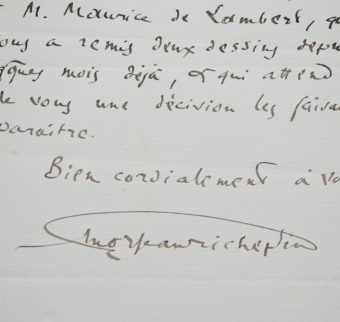 M. Maurice de Lambert, qu
vous a remis deux dessins depu
qques mois déjà, & qui attend
de vous une décision les faisa
paraître.
Bien cordialement à vo
Jean Richepin